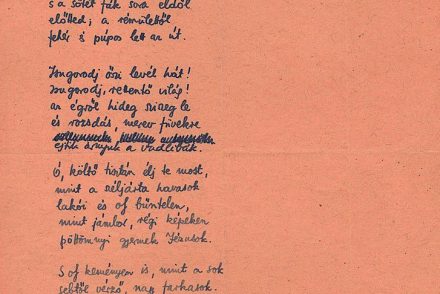 s a sötét fák sora eldől
előtted; a rémülettől
fehér s púpos lett az út.
Zsugorodj őszi levél hát!
Zsugorodj, rettentő világ!
az égről hideg sziszeg le
és rozsdás, merev füvekre
ejtik árnyuk a vadlibák.
Ó, költő tisztán élj te most,
mint a széljárta havasok
lakói és oly bűntelen,
mint jámbor, régi képeken
pöttömnyi gyermek Jézusok.
S oly keményen is, mint a sok
sebtől vérző, nagy farkasok.